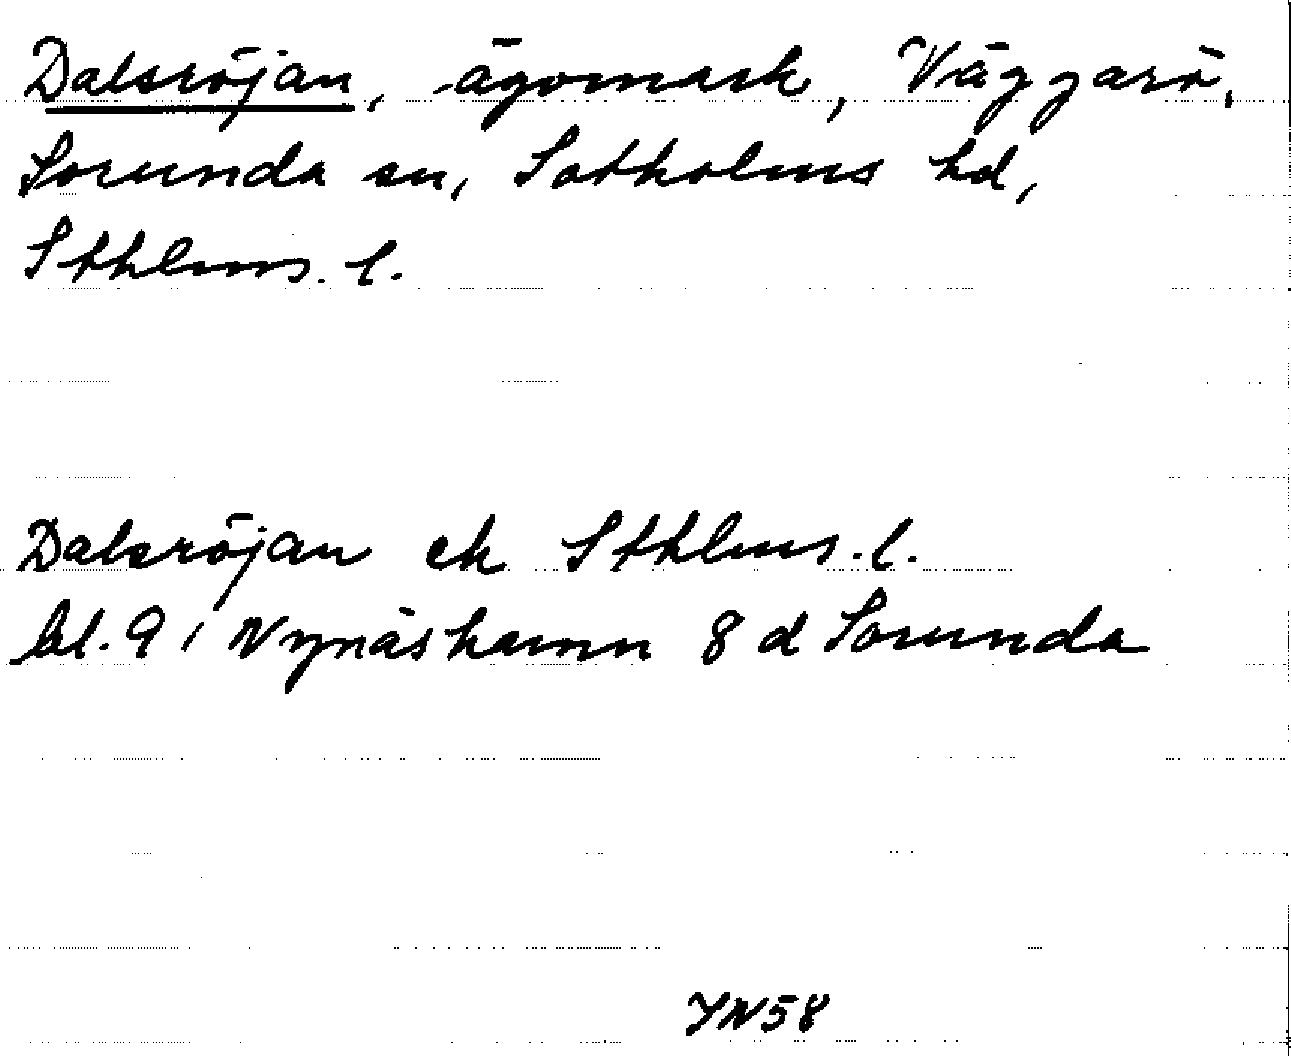 Dalsröjan, ägomark, Väggarö,
Sorunda sn, Sotholms hd,
Sthlms. l.
Dalsröjan ek Sthlms. l.
bl. 9 i Nynäshamn 8 d Sorunda
YN58